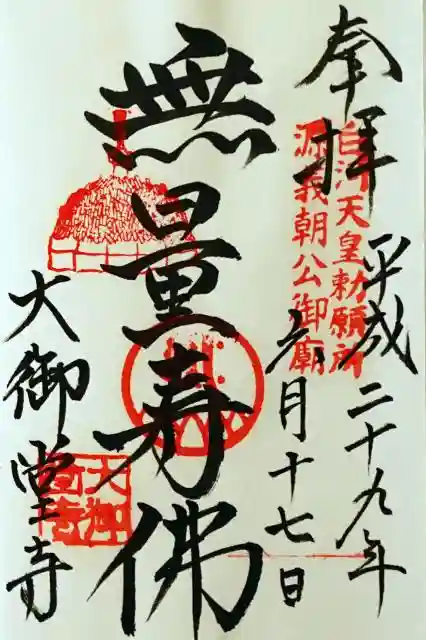 奉拝
白河天皇勅願所
源義朝公御廟
平成二十九年
六月十七日
無量寿佛
大御堂寺
大御堂寺